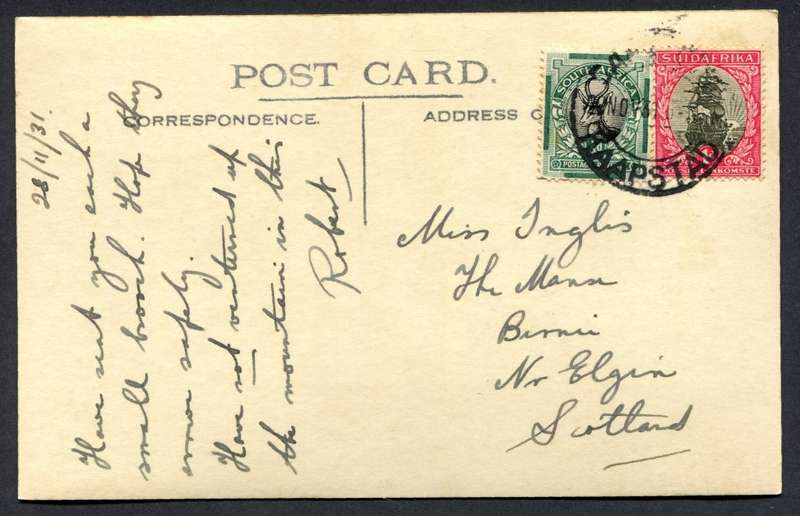 POST CARD.
CORRESPONDENCE.
ADDRESS
28/11/31.
Have sent you each a
small brooch. Hope they
arrive safely.
Have not ventured up
the mountain in this
Robert
Miss Inglis
The Manse
Birnie
Nr Elgin
Scotland
SOUTH AFRICA
POSTAGE
SUIDAFRIKA
KAAPSTAD